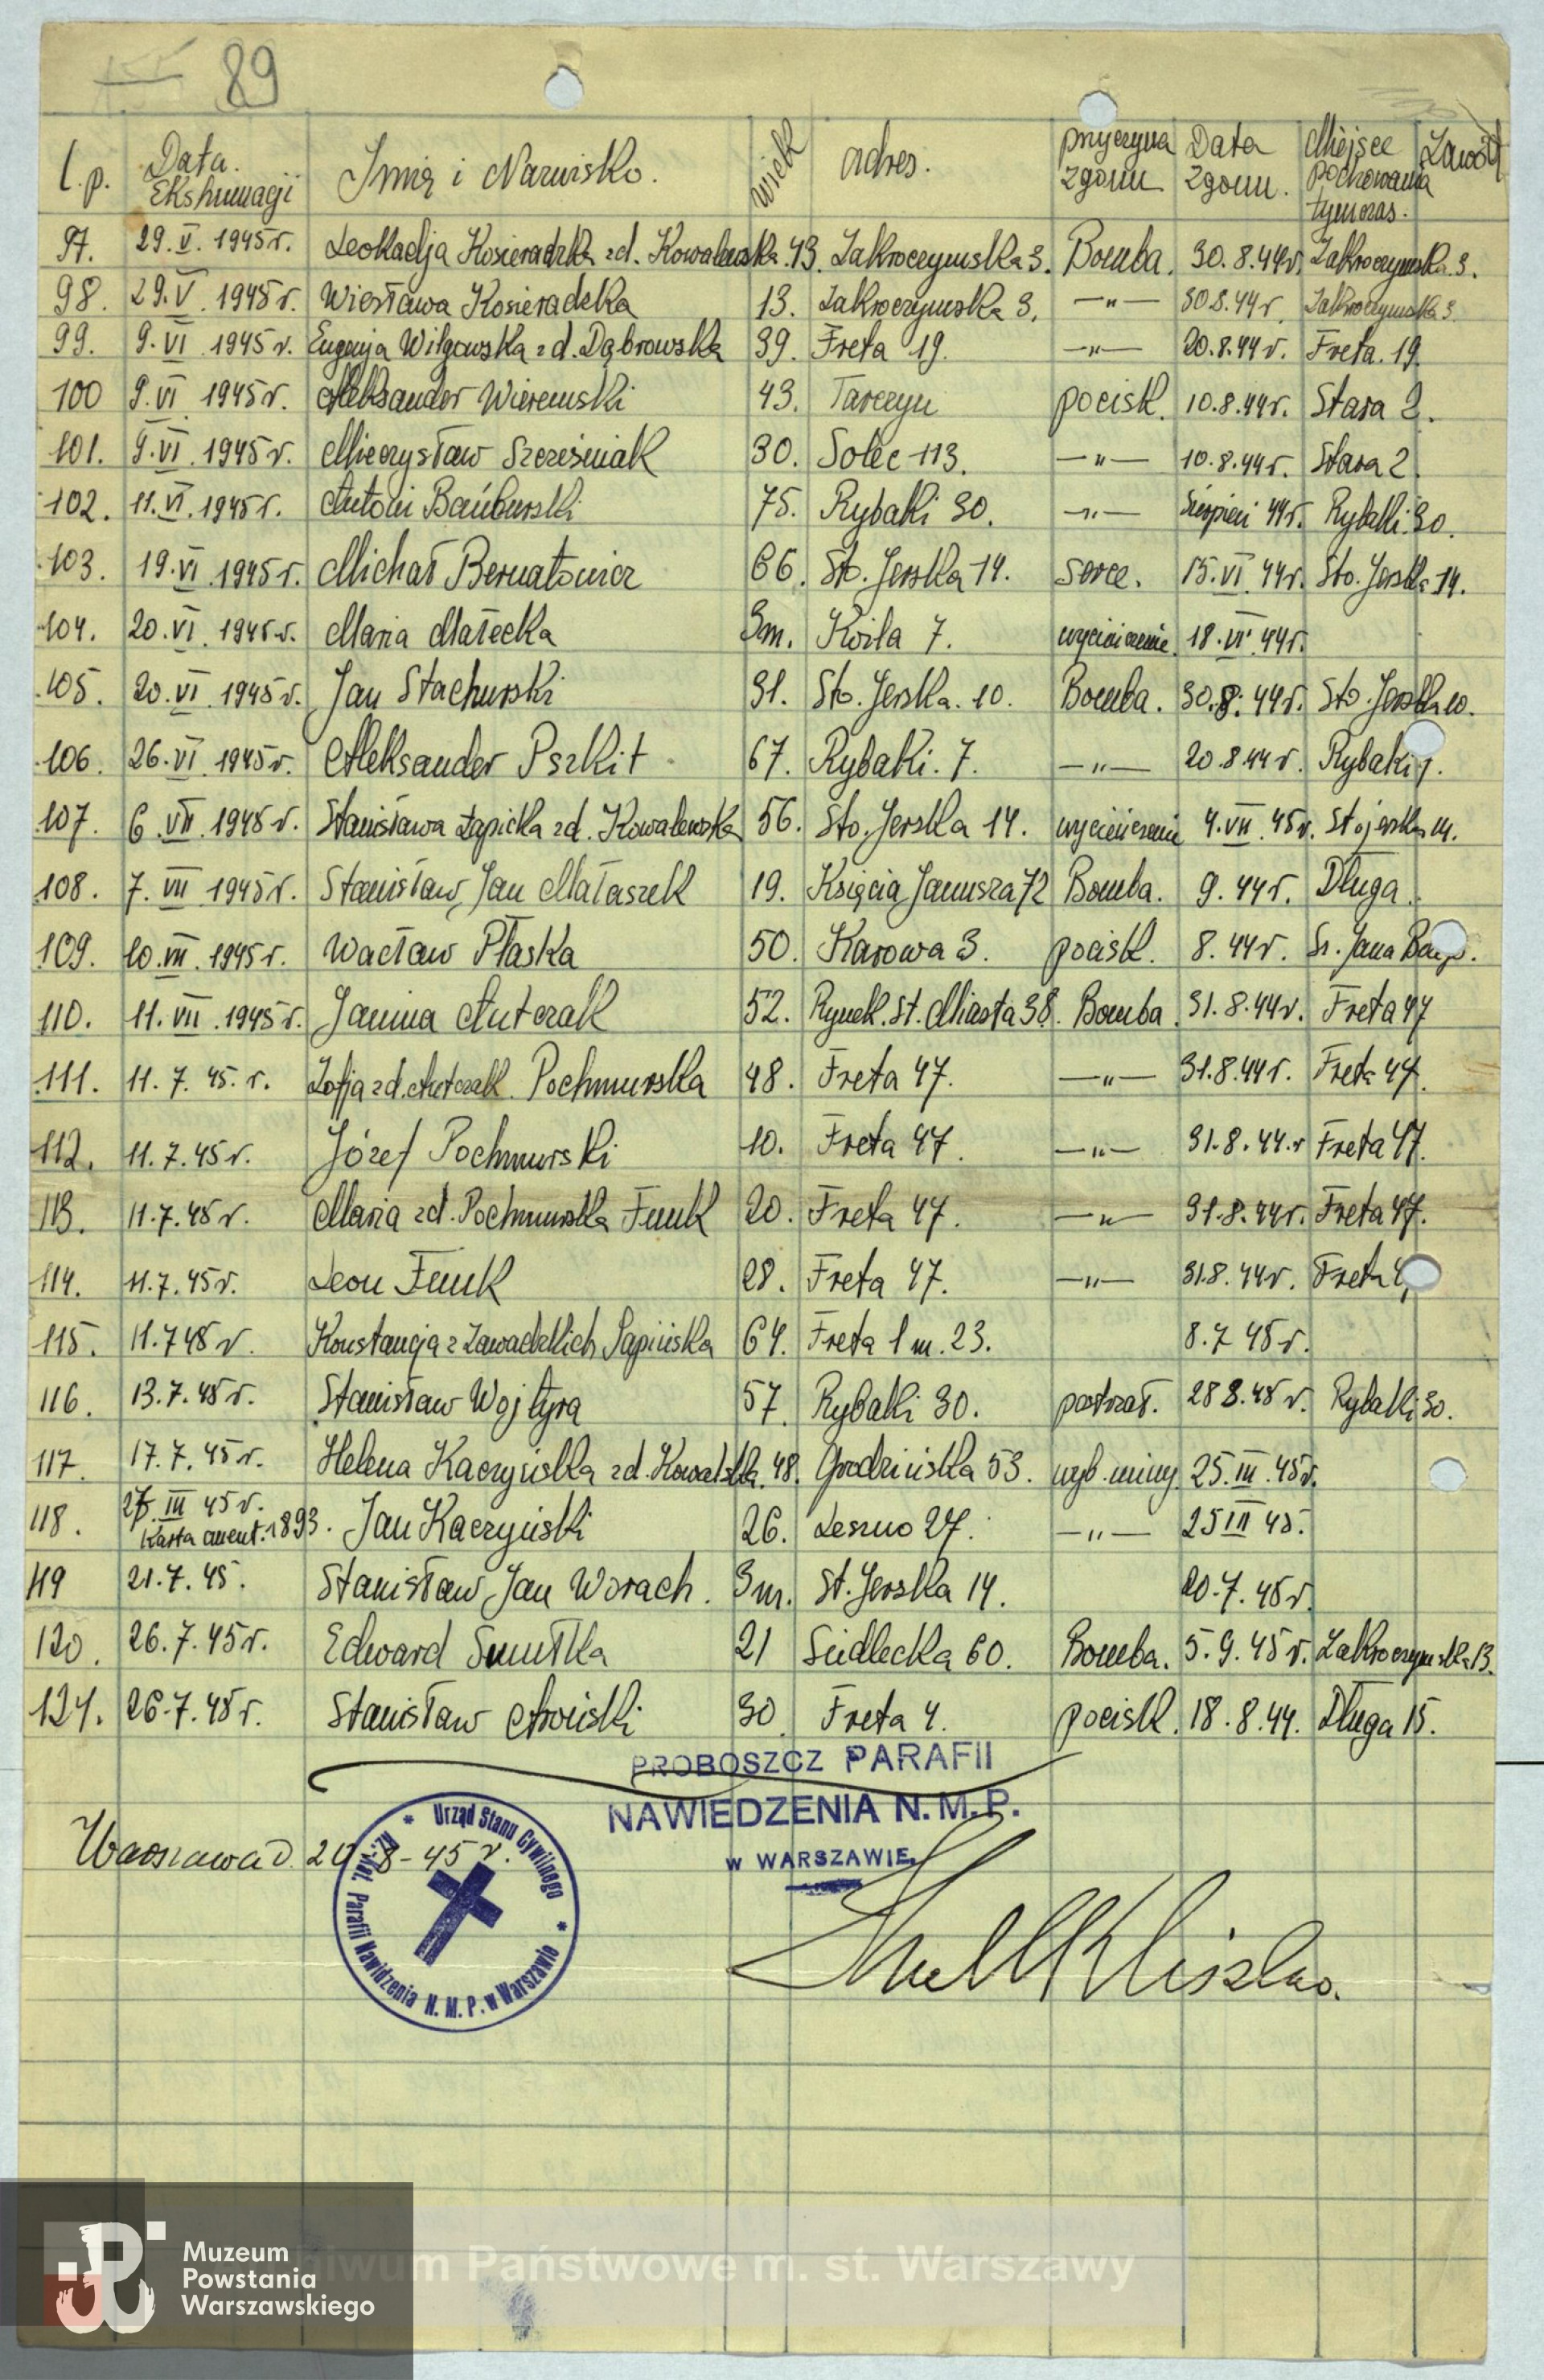 89
l.p. Data Ekshumacji Imię i Nazwisko. wiek adres. przyczyna zgonu Data zgonu. Miejsce pochowania tymczas. Zawód
97. 29.V.1945r. Leokadja Kosieradzka zd. Kowalewska. 43. Zakroczymska 3. Bomba. 30.8.44r. Zakroczymska 3.
98. 29.V.1945r. Wiesława Kosieradzka 13. Zakroczymska 3. —"— 30.8.44r. Zakroczymska 3.
99. 9.VI.1945r. Eugenja Wilgowska zd. Dąbrowska 39. Freta 19. —"— 20.8.44r. Freta. 19.
100 9.VI.1945r. Aleksander Wieremski 43. Tarczyn pocisk. 10.8.44r. Stara 2.
101. 9.VI.1945r. Mieczysław Szcześniak 30. Solec 113. —"— 10.8.44r. Stara 2.
102. 11.VI.1945r. Antoni Bańburski 75. Rybaki 30. —"— Sierpień 44r. Rybaki 30.
103. 19.VI.1945r. Michał Bernatowicz 66. Sto. Jerska 14. serce. 15.VI.44r. Sto. Jerska 14.
104. 20.VI.1945r. Maria Małecka 3m. Koźla 7. wycieńczenie. 18.VI.44r.
105. 20.VI.1945r. Jan Stachurski 31. Sto. Jerska. 10. Bomba. 30.8.44r. Sto. Jerska 10.
106. 26.VI.1945r. Aleksander Pszkit 67. Rybaki. 7. —"— 20.8.44r. Rybaki 7.
107. 6.VII.1945r. Stanisława Łapicka zd. Kowalewska 56. Sto. Jerska 14. wycieńczenie 4.VII.45r. Stojerska 14.
108. 7.VII.1945r. Stanisław, Jan Małaszek 19. Księcia Janusza 72 Bomba. 9.44r. Długa.
109. 10.VII.1945r. Wacław Płaska 50. Karowa 3. pocisk. 8.44r. Św. Jana
110. 11.VII.1945r. Janina Antczak 52. Rynek. St. Miasta 38. Bomba 31.8.44r. Freta 47
111. 11.7.45.r. Zofja zd. Antczak. Pochmurska 48. Freta 47. —"— 31.8.44r. Freta 47.
112. 11.7.45r. Józef Pochmurski 10. Freta 47. —"— 31.8.44.r Freta 47.
113. 11.7.45r. Maria zd. Pochmurska Funk 20. Freta 47. —"— 31.8.44r. Freta 47.
114. 11.7.45r. Leon Funk 28. Freta 47. —"— 31.8.44r. Freta 4
115. 11.7 45 r. Konstancja z Zawadzkich Sapińska 64. Freta 1 m. 23. 8.7 45 r.
116. 13.7.45r. Stanisław Wojtyra 57. Rybaki 30. postrzał. 28 8.45 r. Rybaki 30.
117. 17.7.45r. Helena Kaczyńska zd. Kowalska. 48. Grodzińska 53. wyb. miny. 25.III.45r.
118. 27.III 45r. Karta cment. 1893. Jan Kaczyński 26. Leszno 27. —"— 25 III 45.
119 21.7.45. Stanisław, Jan Worach. 3m. St. Jerska 14. 20.7.45r.
120. 26.7.45r. Edward Smutka 21 Siedlecka 60. Bomba. 5.9.45r. Zakroczymska 13.
121. 26.7.45r. Stanisław Aroński 30 Freta 4. pocisk. 18.8.44. Długa 15.
PROBOSZCZ PARAFII
NAWIEDZENIA N.M.P.
w WARSZAWIE
Warszawa d. 20-8-45 r.
Urząd Stanu Cywilnego Rz.-Kat. Parafii Nawiedzenia N.M.P. w Warszawie
Muzeum
Powstania
Warszawskiego
iwum Państwowe m. st. Warszawy